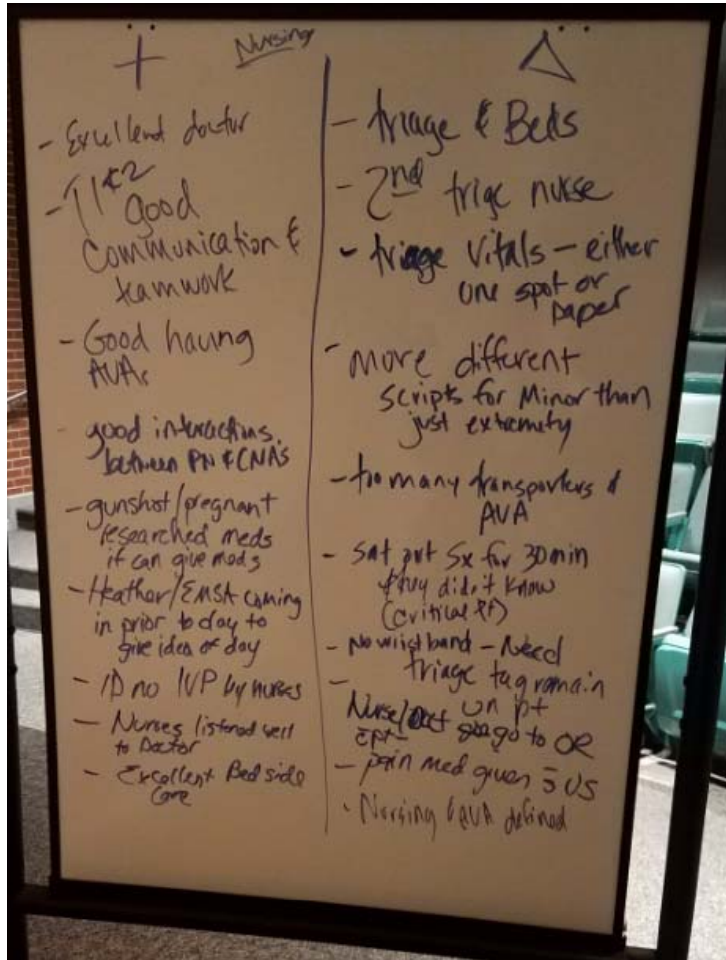 Nursing
+
- Excellent doctor
- T1&2 good
Communication &
teamwork
- Good having
AVAs
- good interactions
between PN & CNAs
- gunshot/pregnant
researched meds
if can give meds
- Heather/EMSA coming
in prior to day to
give idea of day
- ID no IVP by nurses
- Nurses listened well
to Doctor
- Excellent Bed side
Care
Δ
- triage & Beds
- 2nd trige nurse
- triage Vitals - either
one spot or
paper
- more different
scripts for Minor than
just extremity
- too many transporters &
AVA
- Sat out Sx for 30 min
& they didn't know
(critical pt)
- No wristband - Need
triage tag remain
on pt
- Nurse/
c pt go to OR
- pain med given s VS
- Nursing AVA defined